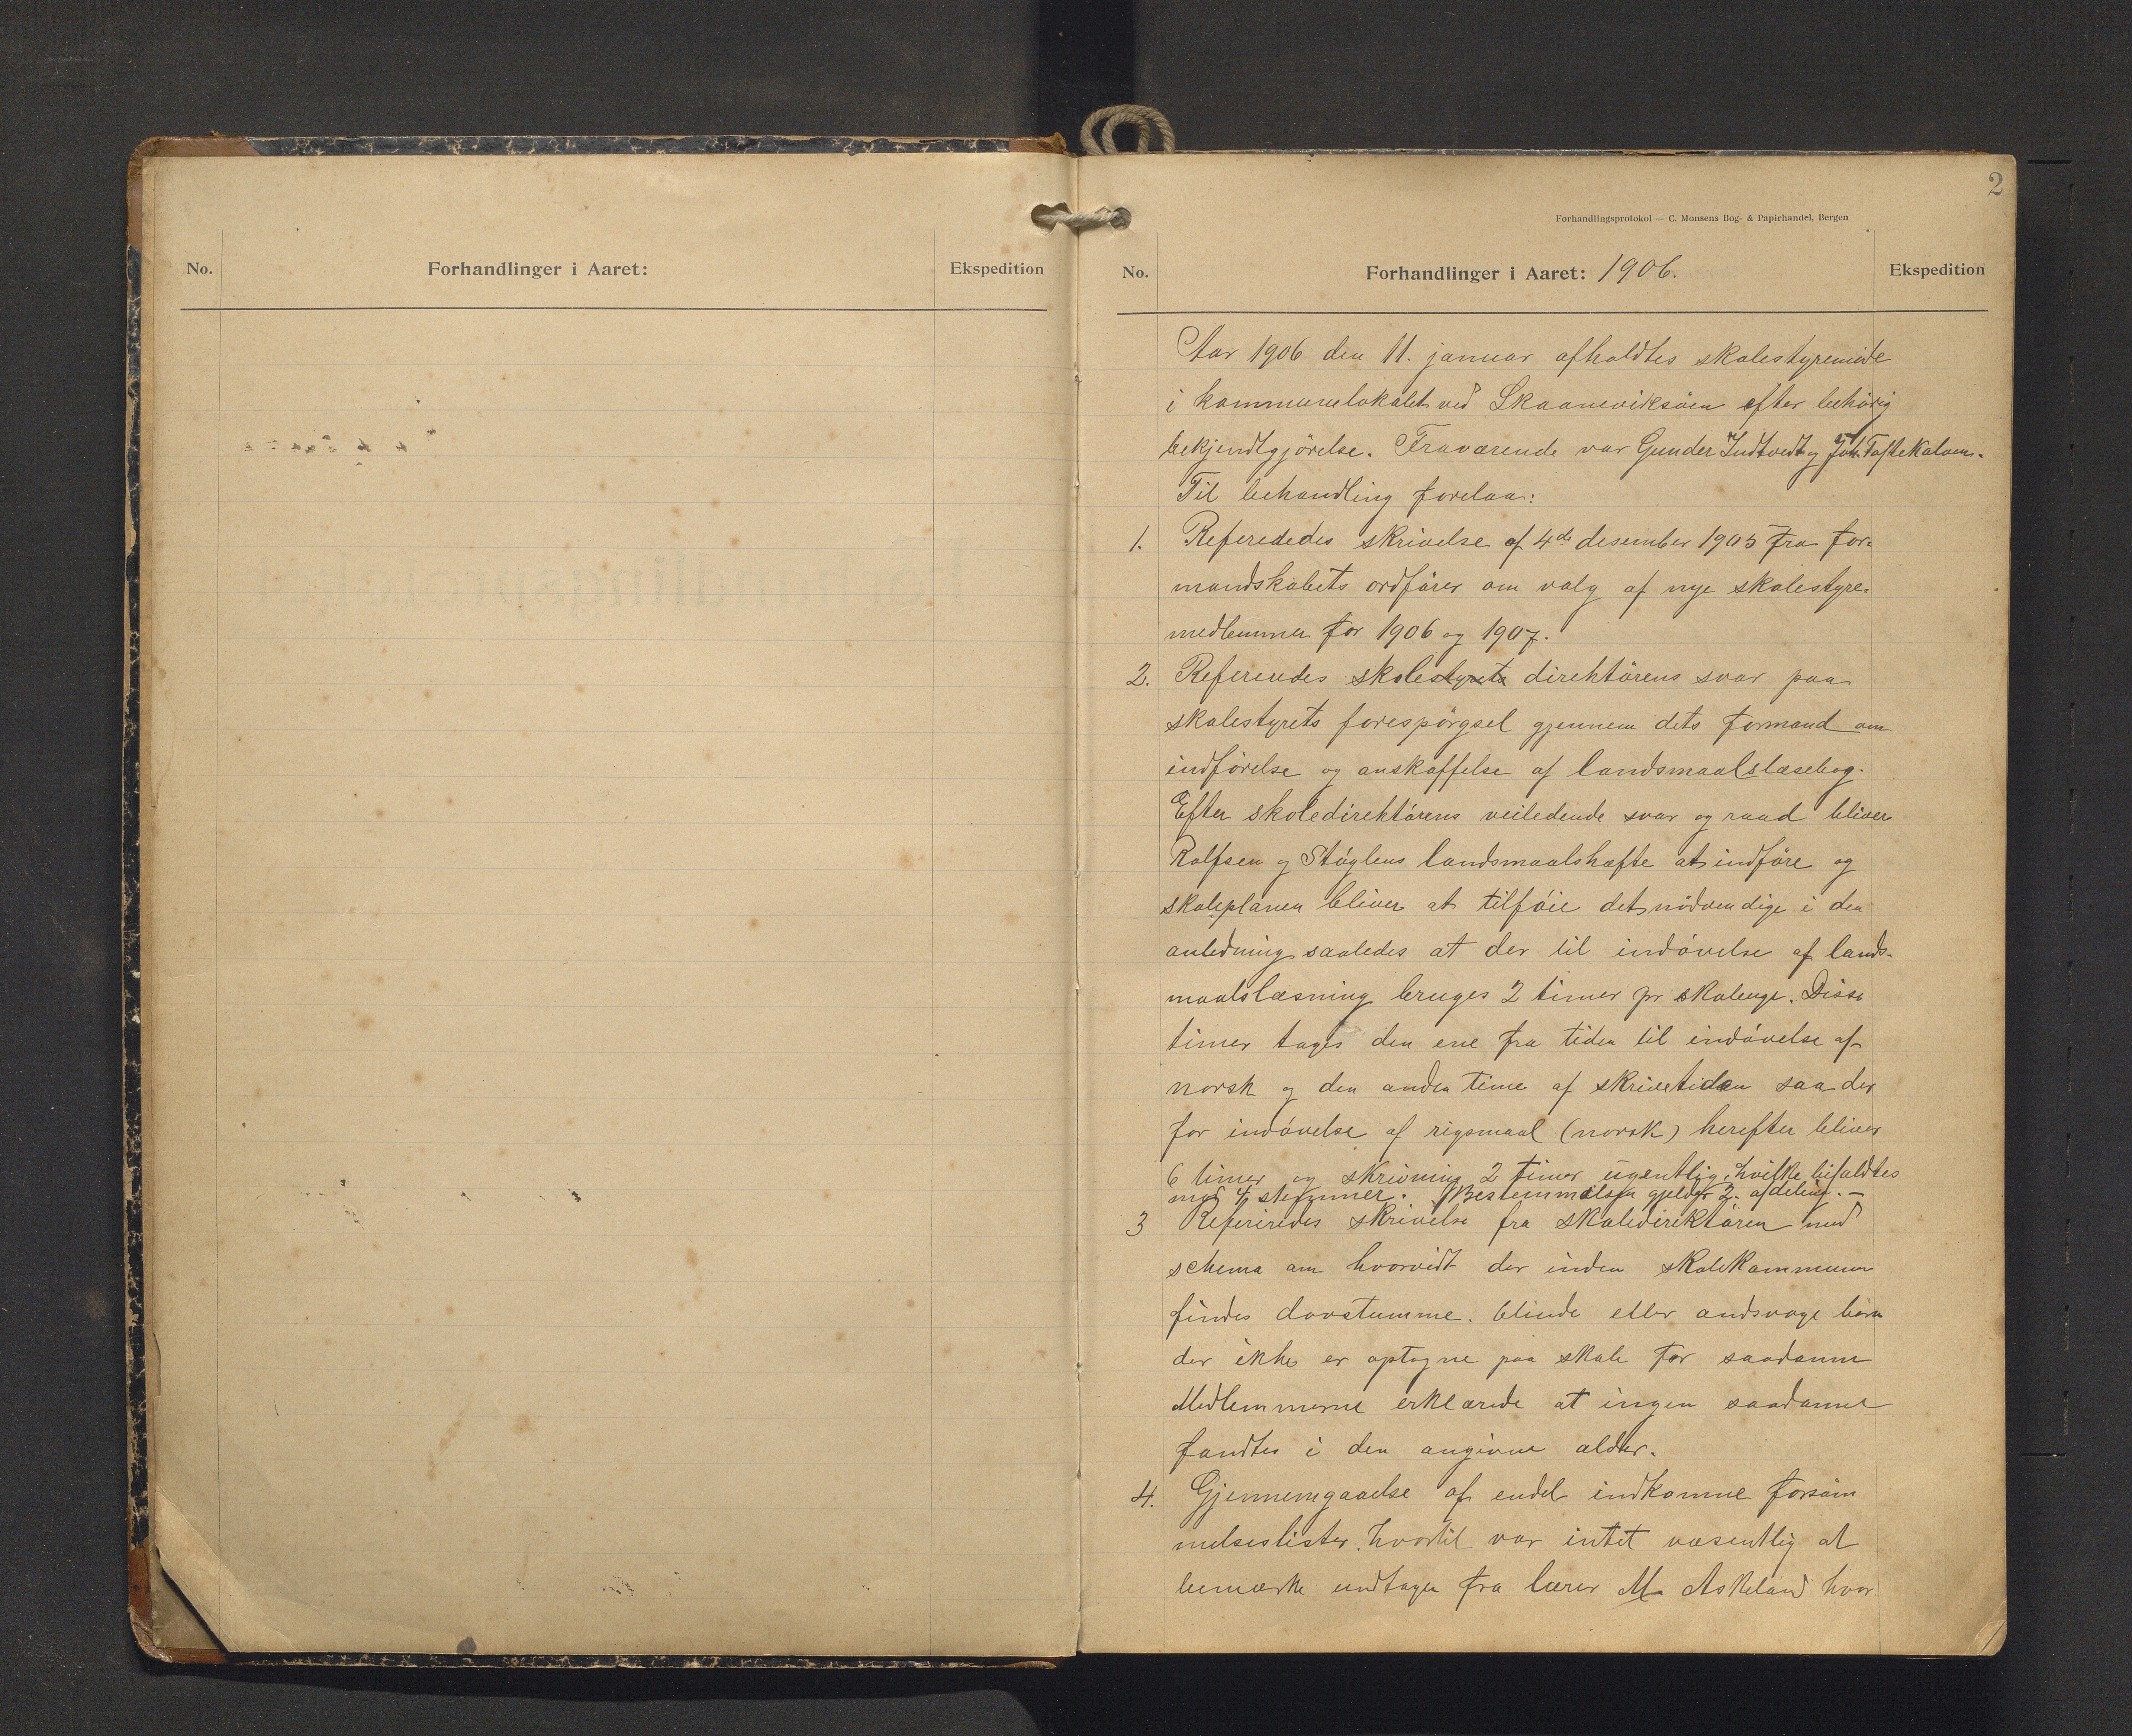 No.
Forhandlinger i Aaret:
Ekspedition
2
Forhandlingsprotokol — C. Monsens Bog- & Papirhandel, Bergen
No.
Forhandlinger i Aaret: 1906.
Ekspedition
Aar 1906 den 11. januar afholdtes skolestyremöde
i kommunelokalet ved Skaaneviksöen efter behörig
bekjendtgjörelse. Fraværende var Gunder Indtvedt og Joh. Taftekalven.
Til behandling forelaa:
1. Referededes skrivelse af 4de desember 1905 fra for-
mandskabets ordförer om valg af nye skolestyre-
medlemmer for 1906 og 1907.
2. Refereedes skolestyrets direktörens svar paa
skolestyrets forespörgsel gjennem dets formand om
indförelse og anskaffelse af landsmaalslæsebog.
Efter skoledirektörens veiledende svar og raad bliver
Rolfsen og Stöylens landsmaalshæfte at indföre og
skoleplanen bliver at tilföie det nödvendige i den
anledning saaledes at der til indövelse af lands-
maalslæsning bruges 2 timer pr skoleuge. Disse
timer tages den ene fra tiden til indövelse af
norsk og den anden time af skrivetiden saa der
for indövelse af rigsmaal (norsk) herefter bliver
6 timer og skrivning 2 timer ugentlig, hvilke bifaldtes
mod 4 stemmer. Bestemmelsen gjelder 2. afdeling. —
3 Refereredes skrivelse fra skoledirektören med
schema om hvorvidt der inden skolekommunen
findes dovstumme. blinde eller andsvage börn
der ikke er optagne paa skole for saadanne
Medlemmerne erklærede at ingen saadanne
fandtes i den angivne alder.
4. Gjennemgaaelse af endel indkomne forsöm
melseslister. hvortil var intet væsentlig at
bemærke undtagen fra lærer M. Askeland hvor